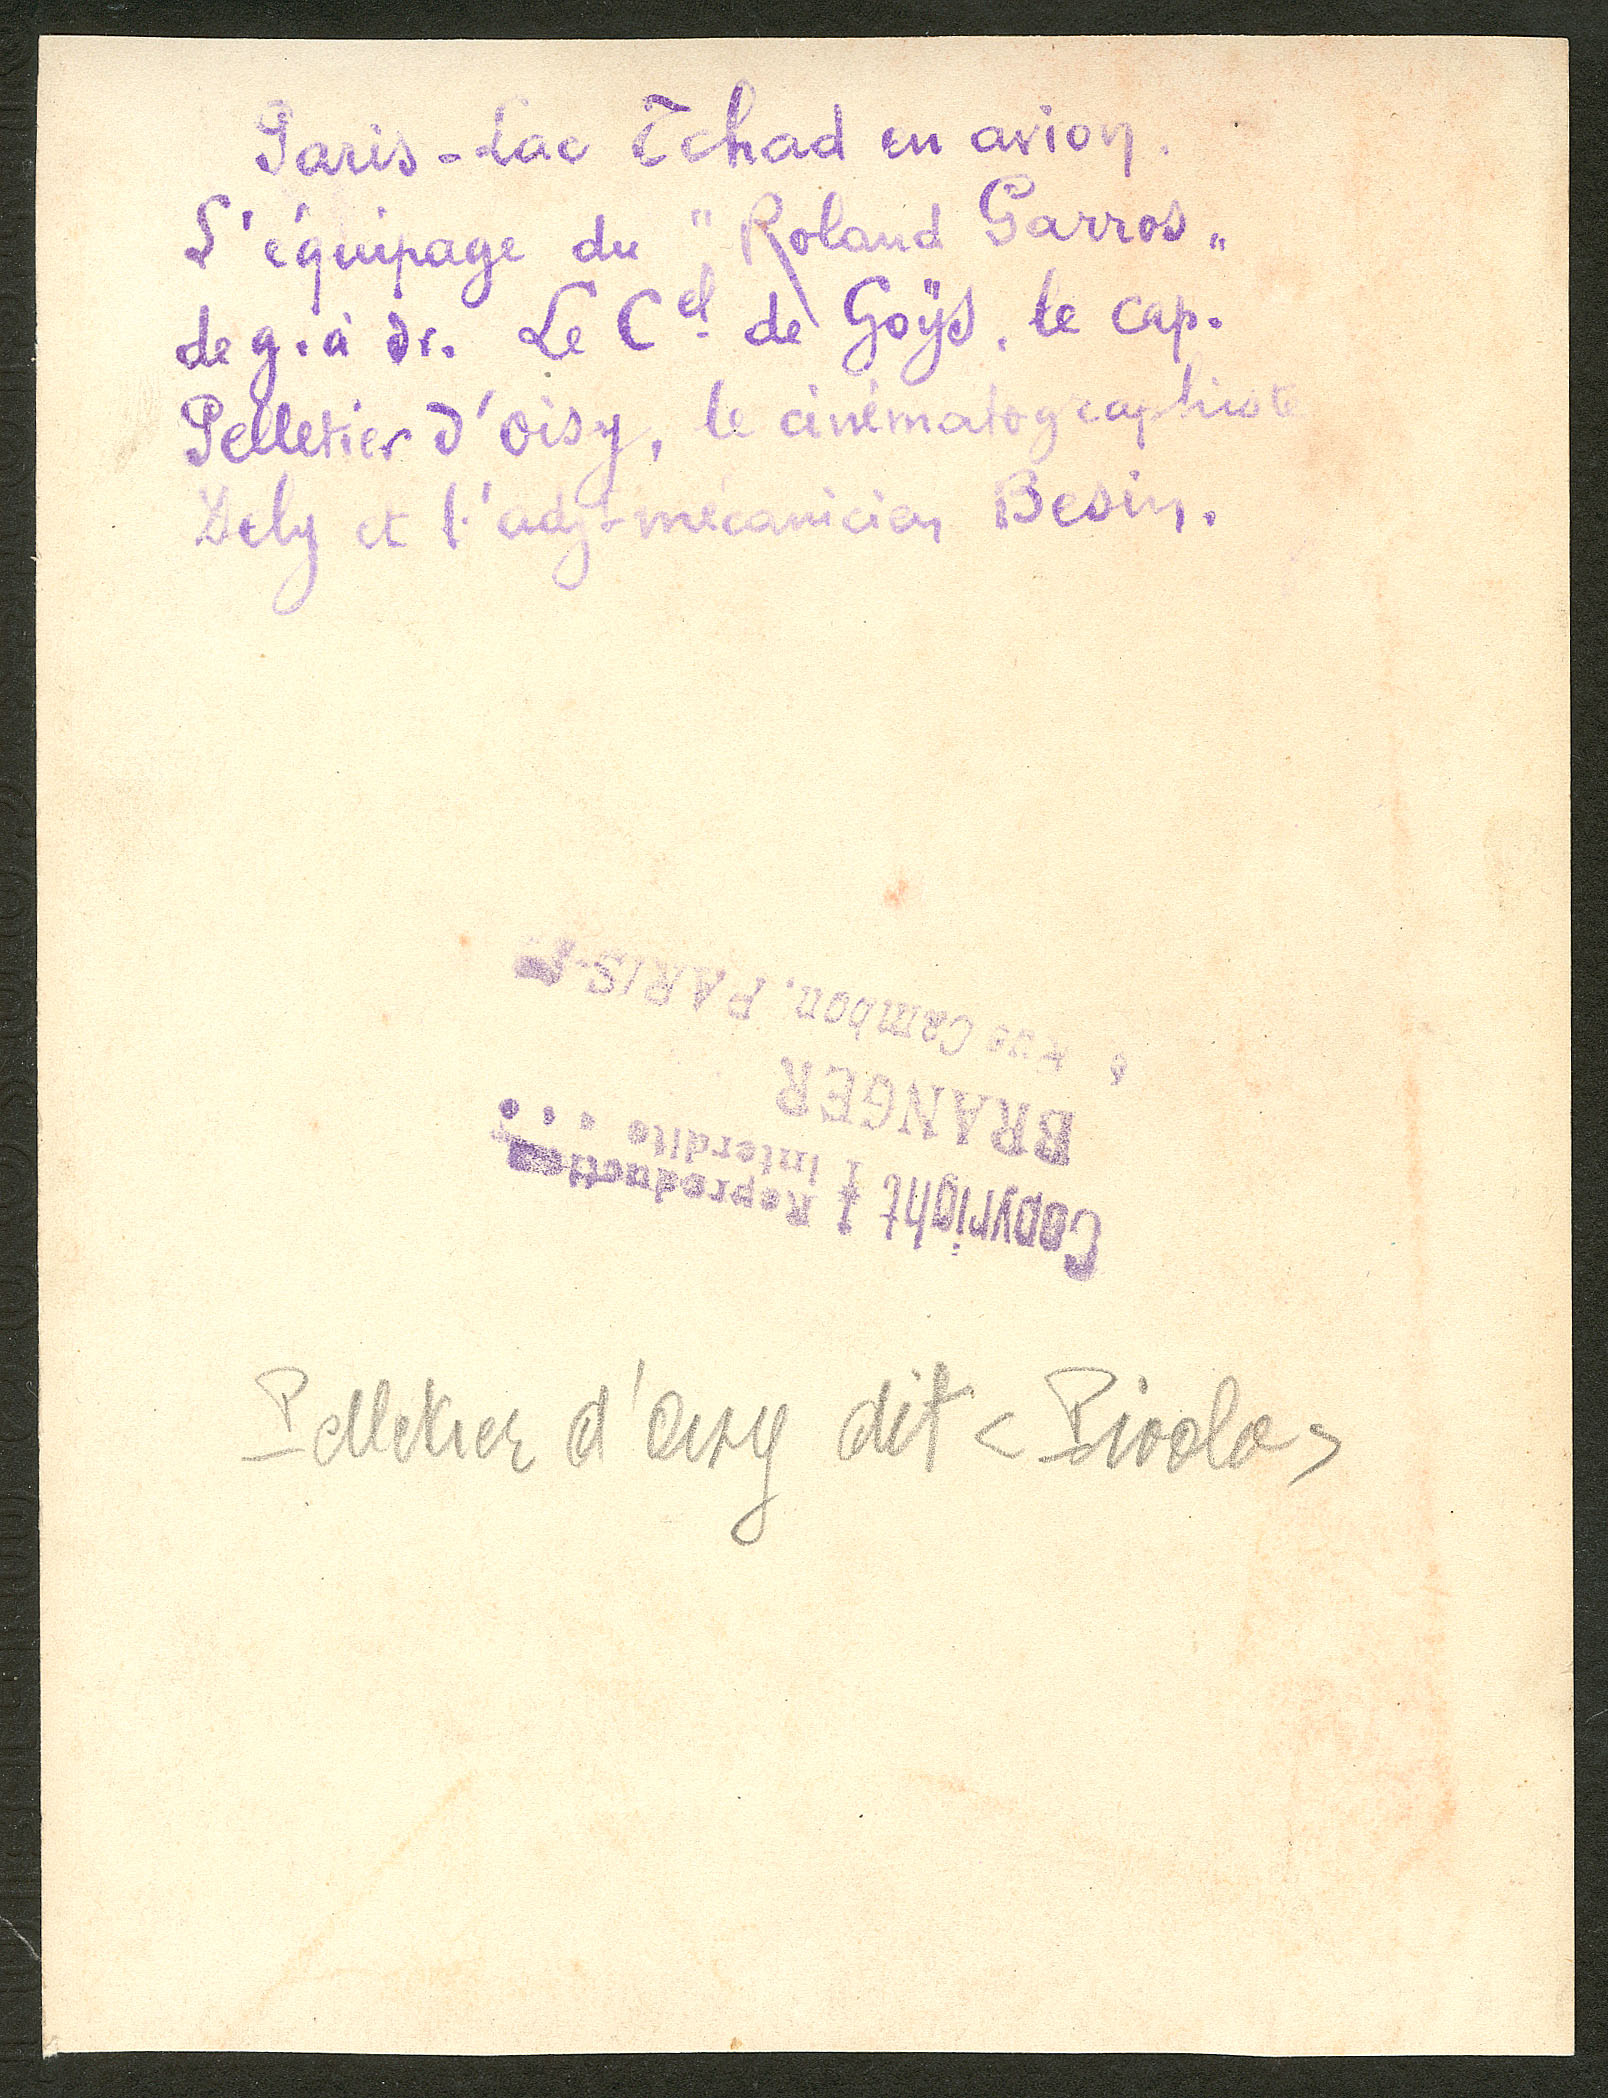 Paris - Lac Tchad en avion.
L'équipage du "Roland Garros"
de g. à dr. Le Cel de Goÿs, le cap.
Pelletier d'Oisy, le cinématographiste
Dely et l'adjt-mécanicien Besin.
Copyright Reproduction
interdite...
BRANGER
rue Cambon, PARIS
Pelletier d'Oisy dit <Pivolo>